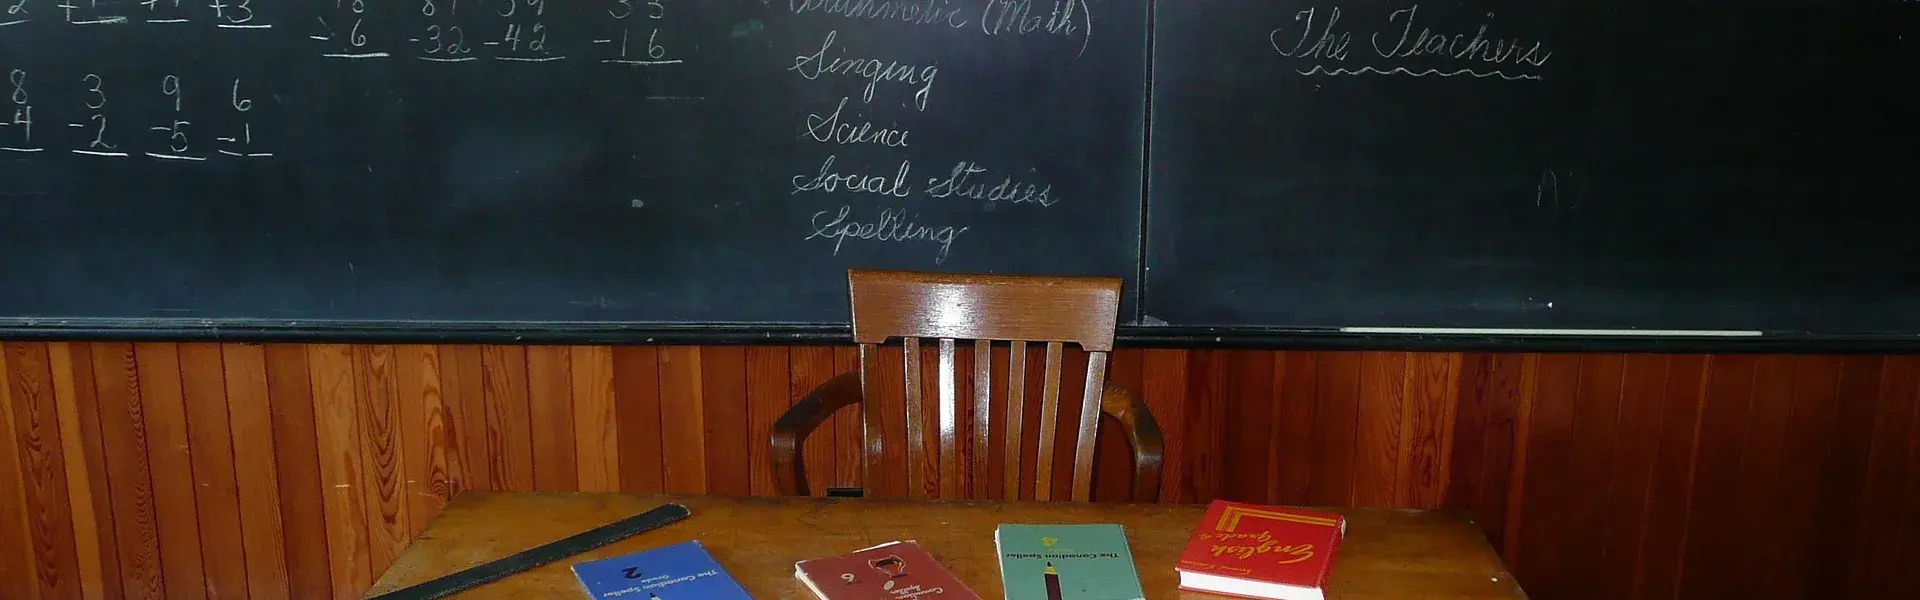 +3
6 -32 -42 -16
8 3 9 6
-4 -2 -5 -1
Arithmetic (Math)
Singing
Science
Social Studies
Spelling
The Teachers
The Canadian Speller
Grade
2
Canadian Speller
6
The Canadian Speller
4
English
Grade 6